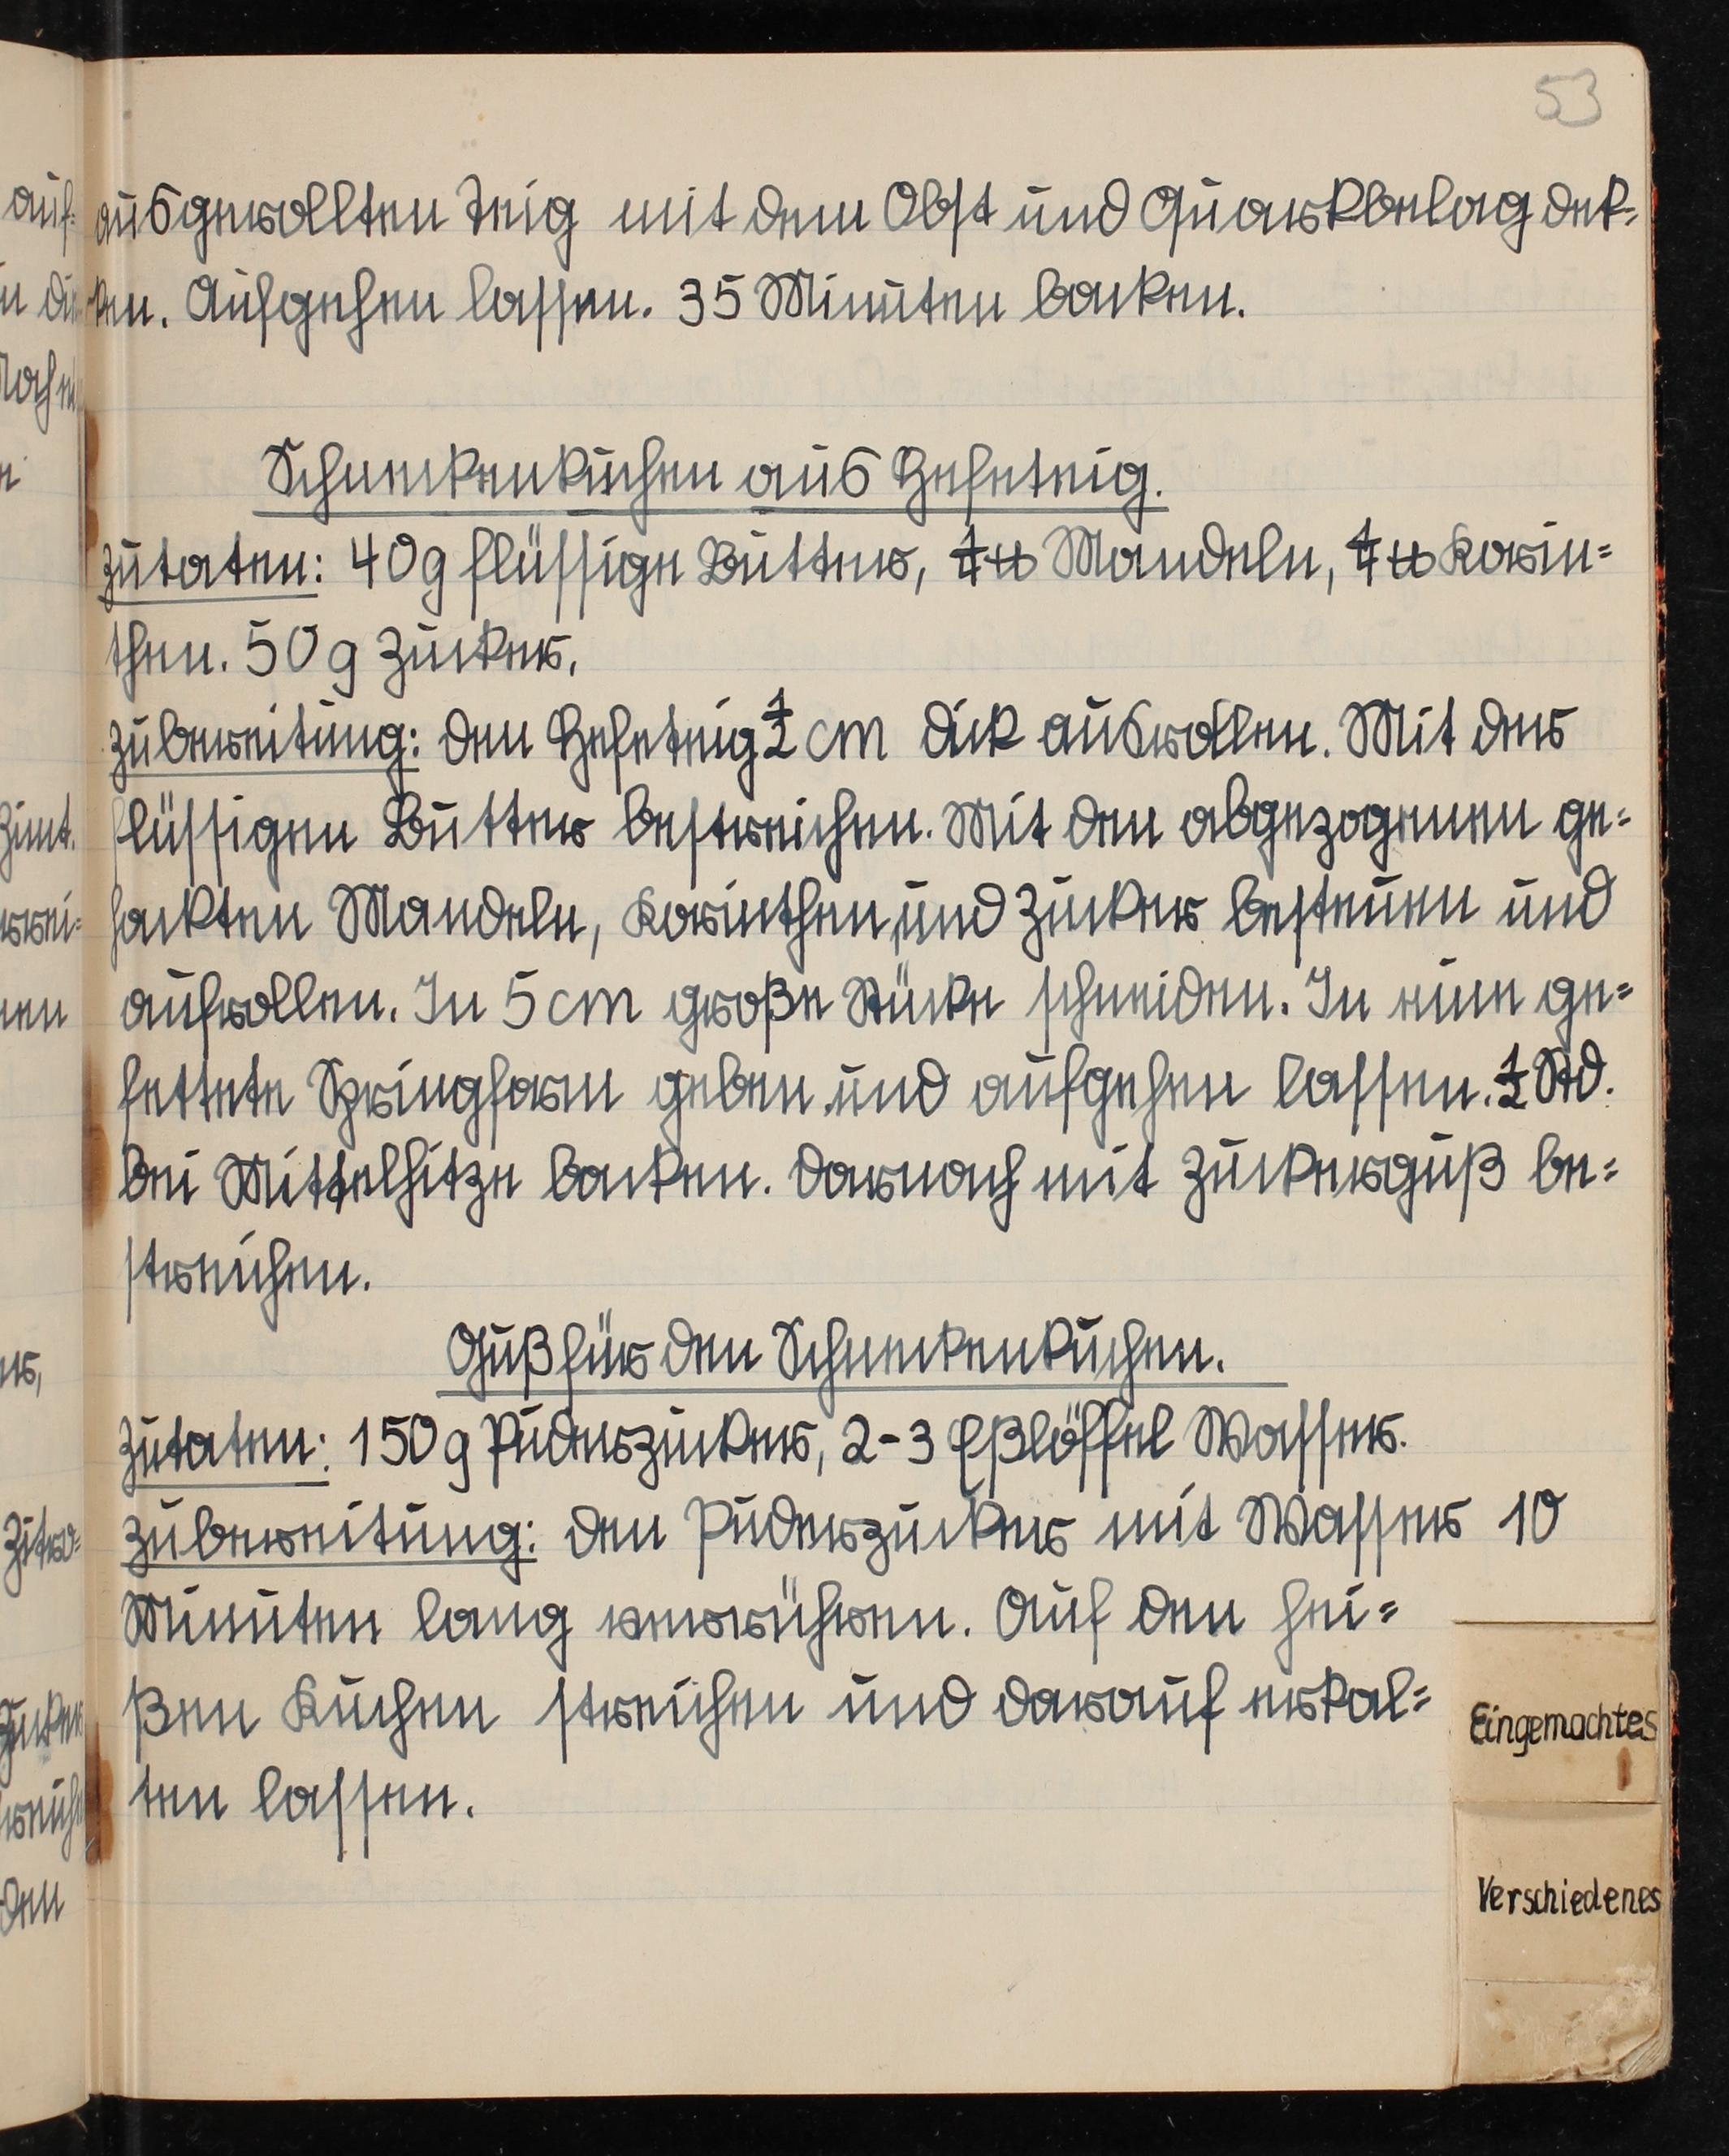 53
ausgerollten Teig mit dem Obst und Quarkbelag dek-
ken. Aufgehen lassen. 35 Minuten backen.
Schneckenkuchen aus Hefeteig.
Zutaten: 40 g flüssige Butter, ¼ ℔ Mandeln, ¼ ℔ Korin-
then. 50 g Zucker.
Zubereitung: Den Hefeteig ½ cm dick ausrollen. Mit der
flüssigen Butter bestreichen. Mit den abgezogenen ge-
hackten Mandeln, Korinthen, und Zucker besteuen und
aufrollen. In 5 cm große Stücke schneiden. In eine ge-
fettete Springform geben und aufgehen lassen. ½ Std.
bei Mittelhitze backen. Darnach mit Zuckerguß be-
streichen.
Guß für den Schneckenkuchen.
Zutaten: 150 g Puderzucker, 2-3 Eßlöffel Wasser.
Zubereitung: Den Puderzucker mit Wasser 10
Minuten lang verrühren. Auf den hei-
ßen Kuchen streichen und darauf erkal-
ten lassen.
Eingemachtes
Verschiedenes